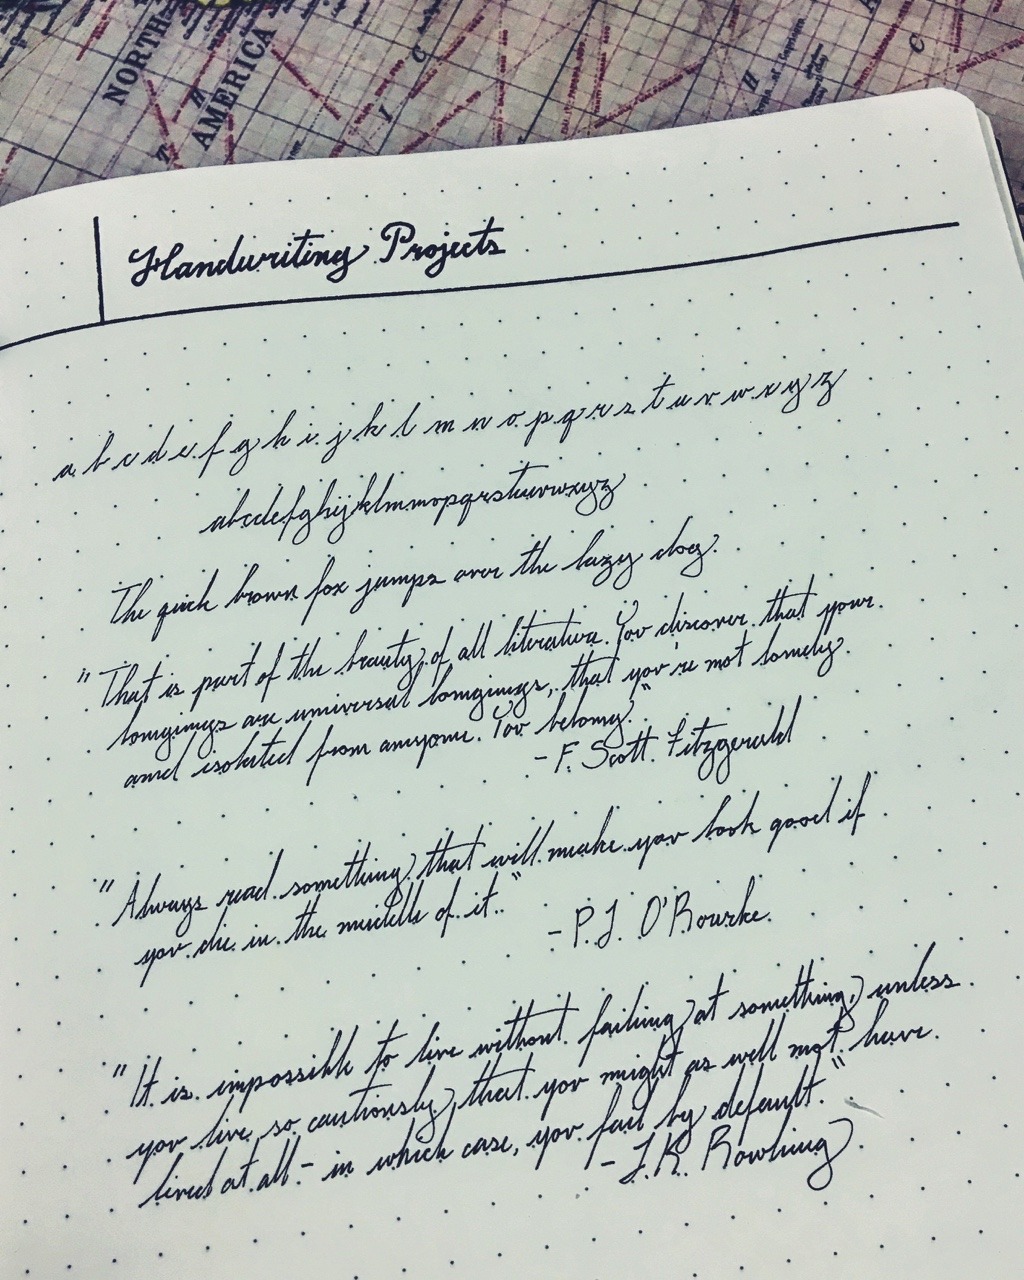 NORTH
AMERICA
Handwriting Projects
a b c d e f g h i j k l m n o p q r s t u v w x y z
abcdefghijklmnopqrstuvwxyz
The quick brown fox jumps over the lazy dog.
"That is part of the beauty of all literature. You discover that your
longings are universal longings, that you're not lonely
and isolated from anyone. You belong."
- F. Scott Fitzgerald
"Always read something that will make you look good if
you die in the middle of it."
- P.J. O'Rourke
"It is impossible to live without failing at something, unless
you live so cautiously that you might as well not have
lived at all - in which case, you fail by default."
- J.K. Rowling